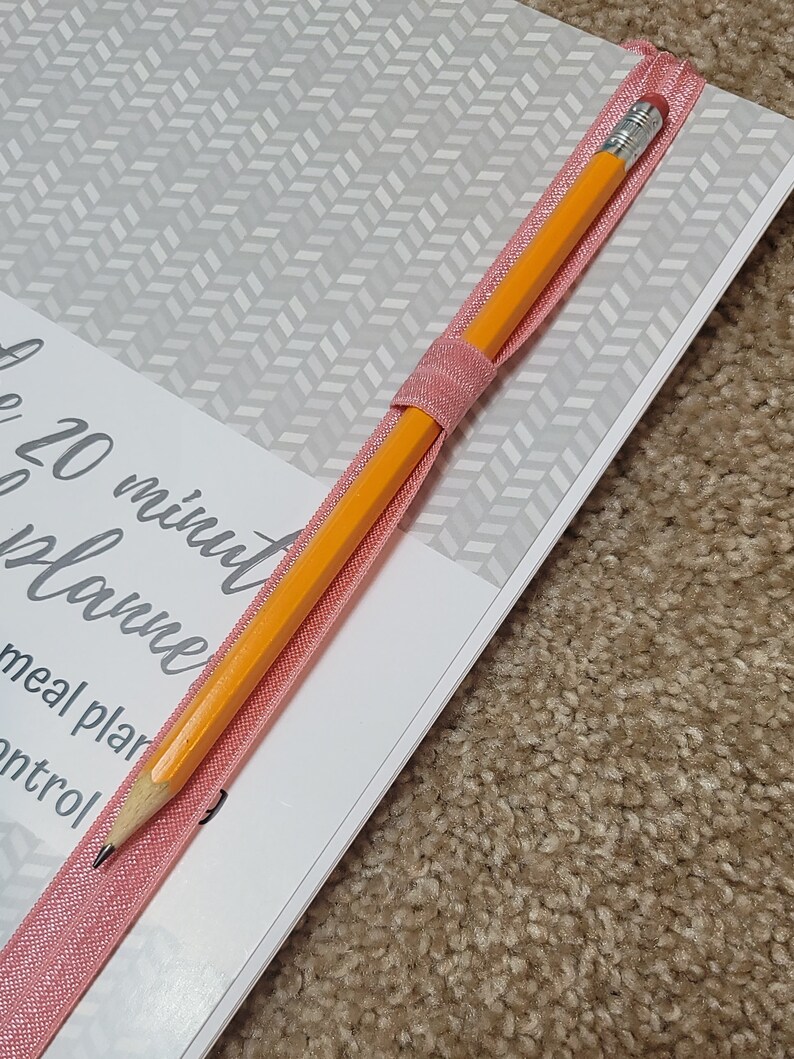 he 20 minut
planne
meal plan
ontrol